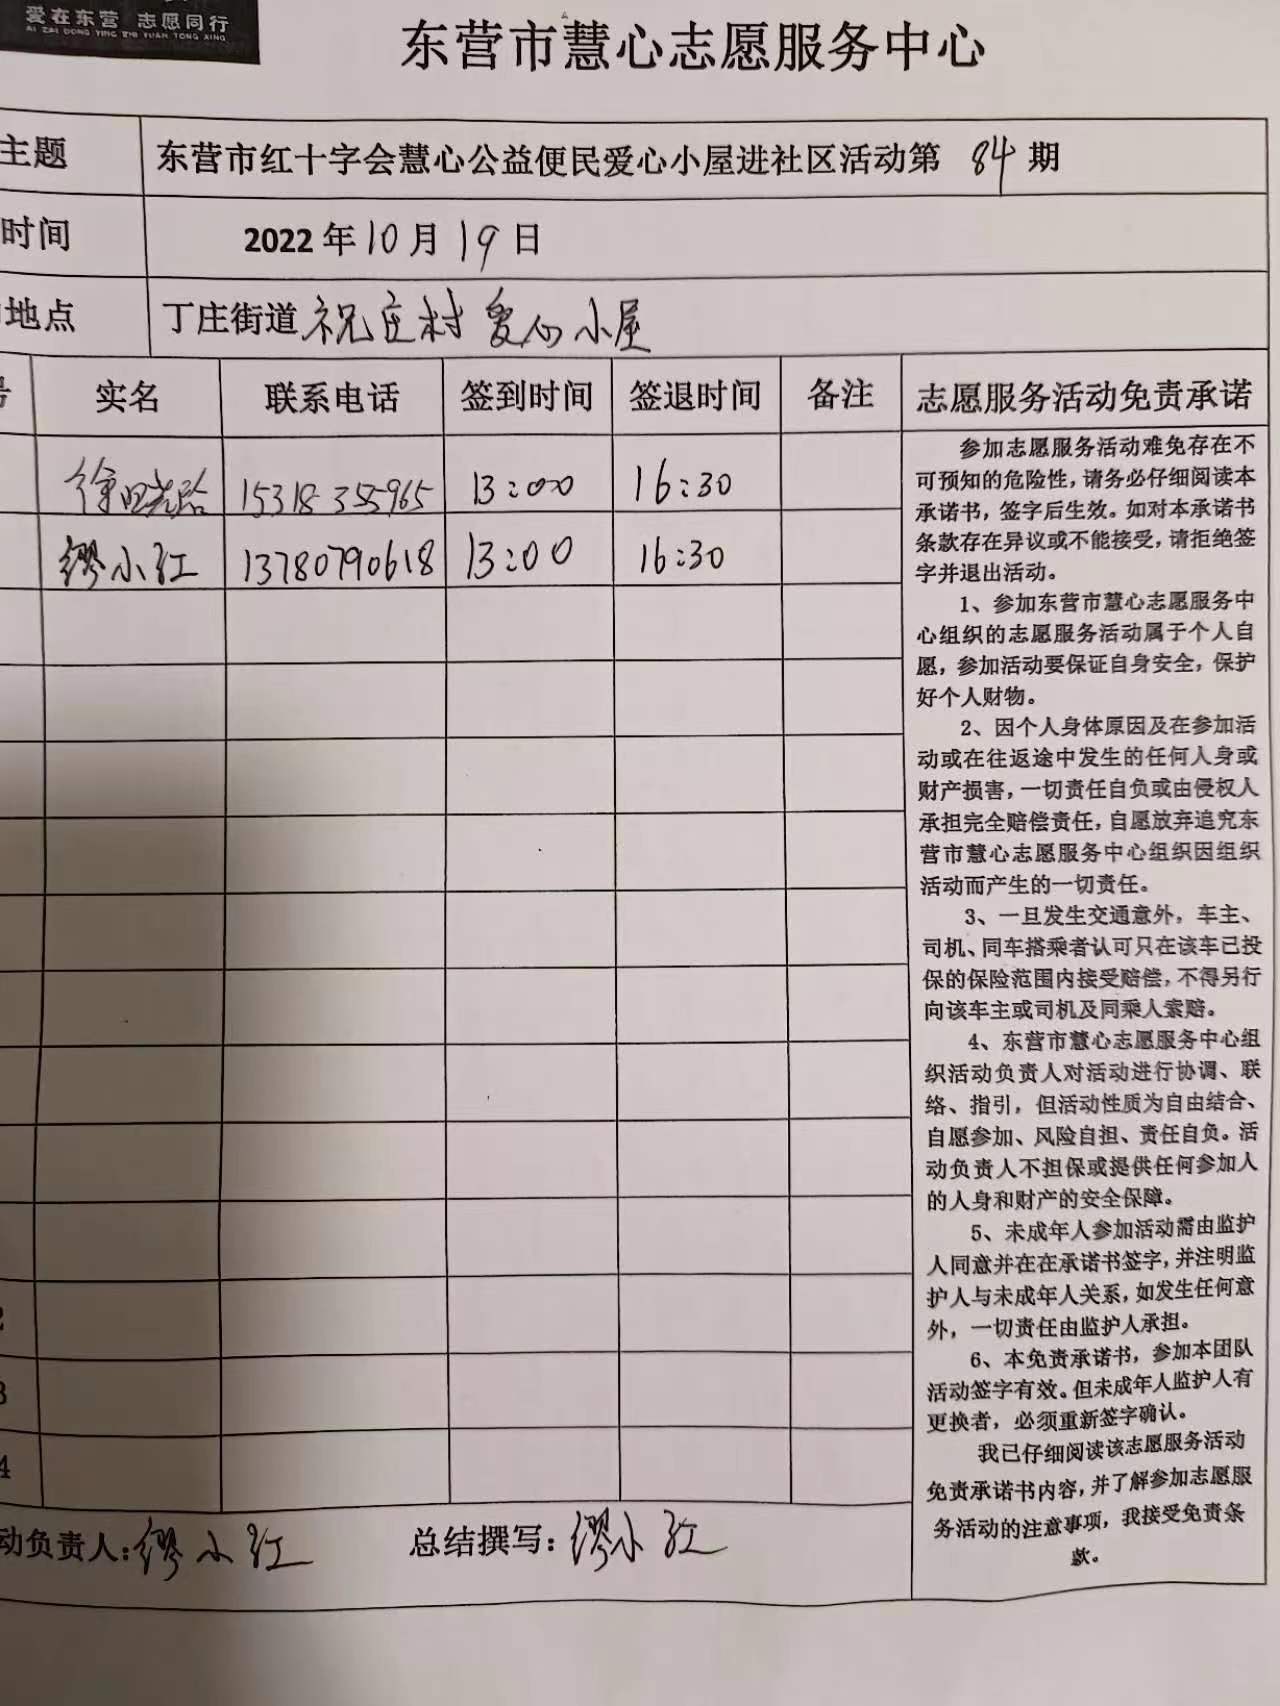 爱在东营 志愿同行
AI ZAI DONG YING ZHI YUAN TONG XING
东营市慧心志愿服务中心
主题 东营市红十字会慧心公益便民爱心小屋进社区活动第 84 期
时间 2022年10月19日
地点 丁庄街道祝庄村爱心小屋
号 实名 联系电话 签到时间 签退时间 备注 志愿服务活动免责承诺
15318355965 13:00 16:30
缪小红 13780790618 13:00 16:30
2
3
4
动负责人:缪小红 总结撰写:缪小红
参加志愿服务活动难免存在不
可预知的危险性,请务必仔细阅读本
承诺书,签字后生效。如对本承诺书
条款存在异议或不能接受,请拒绝签
字并退出活动。
1、参加东营市慧心志愿服务中
心组织的志愿服务活动属于个人自
愿,参加活动要保证自身安全,保护
好个人财物。
2、因个人身体原因及在参加活
动或在往返途中发生的任何人身或
财产损害,一切责任自负或由侵权人
承担完全赔偿责任,自愿放弃追究东
营市慧心志愿服务中心组织因组织
活动而产生的一切责任。
3、一旦发生交通意外,车主、
司机、同车搭乘者认可只在该车已投
保的保险范围内接受赔偿,不得另行
向该车主或司机及同乘人索赔。
4、东营市慧心志愿服务中心组
织活动负责人对活动进行协调、联
络、指引,但活动性质为自由结合、
自愿参加、风险自担、责任自负。活
动负责人不担保或提供任何参加人
的人身和财产的安全保障。
5、未成年人参加活动需由监护
人同意并在在承诺书签字,并注明监
护人与未成年人关系,如发生任何意
外,一切责任由监护人承担。
6、本免责承诺书,参加本团队
活动签字有效。但未成年人监护人有
更换者,必须重新签字确认。
我已仔细阅读该志愿服务活动
免责承诺书内容,并了解参加志愿服
务活动的注意事项,我接受免责条
款。